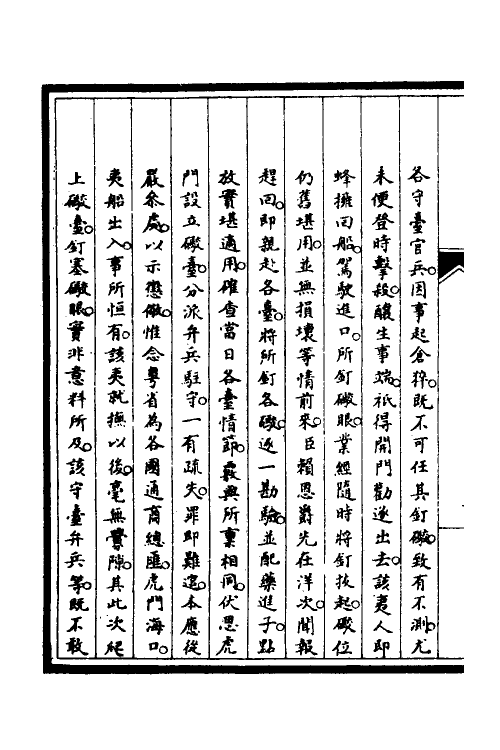 各守臺官兵。因事起倉猝。既不可任其釘礮。致有不測。尤
未便登時擊殺。釀生事端。祇得開門勸逐出去。該夷人即
蜂擁回船。駕駛進口。所釘礮眼。業經隨時將釘拔起。礮位
仍舊堪用。並無損壞等情前來。臣賴恩爵先在洋次。聞報
趕回。即親赴各臺。將所釘各礮。逐一勘驗。並配藥進子。點
放實堪適用。確查當日各臺情節。覈與所稟相同。伏思虎
門設立礮臺。分派弁兵駐守。一有疏失。罪即難逭。本應從
嚴叅處。以示懲儆。惟念粵省為各國通商總匯。虎門海口。
夷船出入。事所恒有。該夷就撫以後。毫無釁隙。其此次爬
上礮臺。釘塞礮眼。實非意料所及。該守臺弁兵等。既不敢